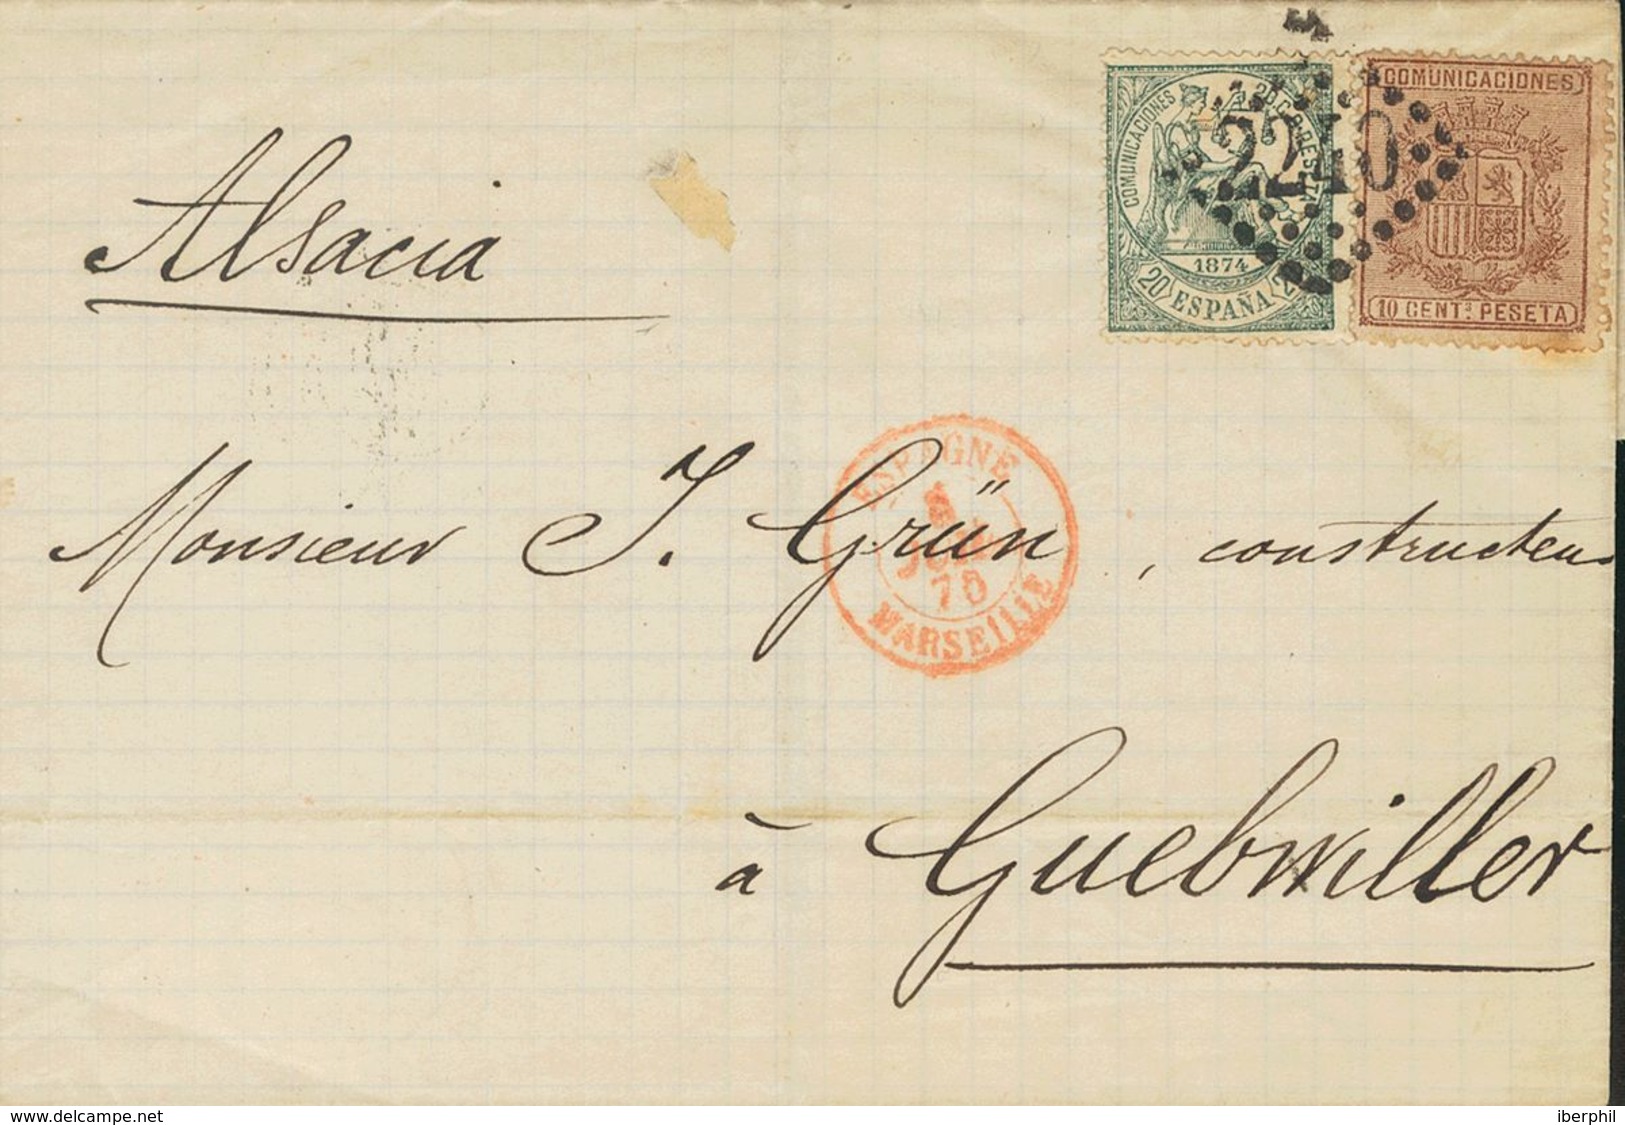 COMUNICACIONES
20 C. PESETA
2240
1874
20 ESPAÑA
COMUNICACIONES
10 CENTS PESETA
Alsacia
ESPAGNE
JUIN
75
MARSEILLE
Monsieur J. Grün, constructeur
à Guebwiller
www.delcampe.net
iberphil